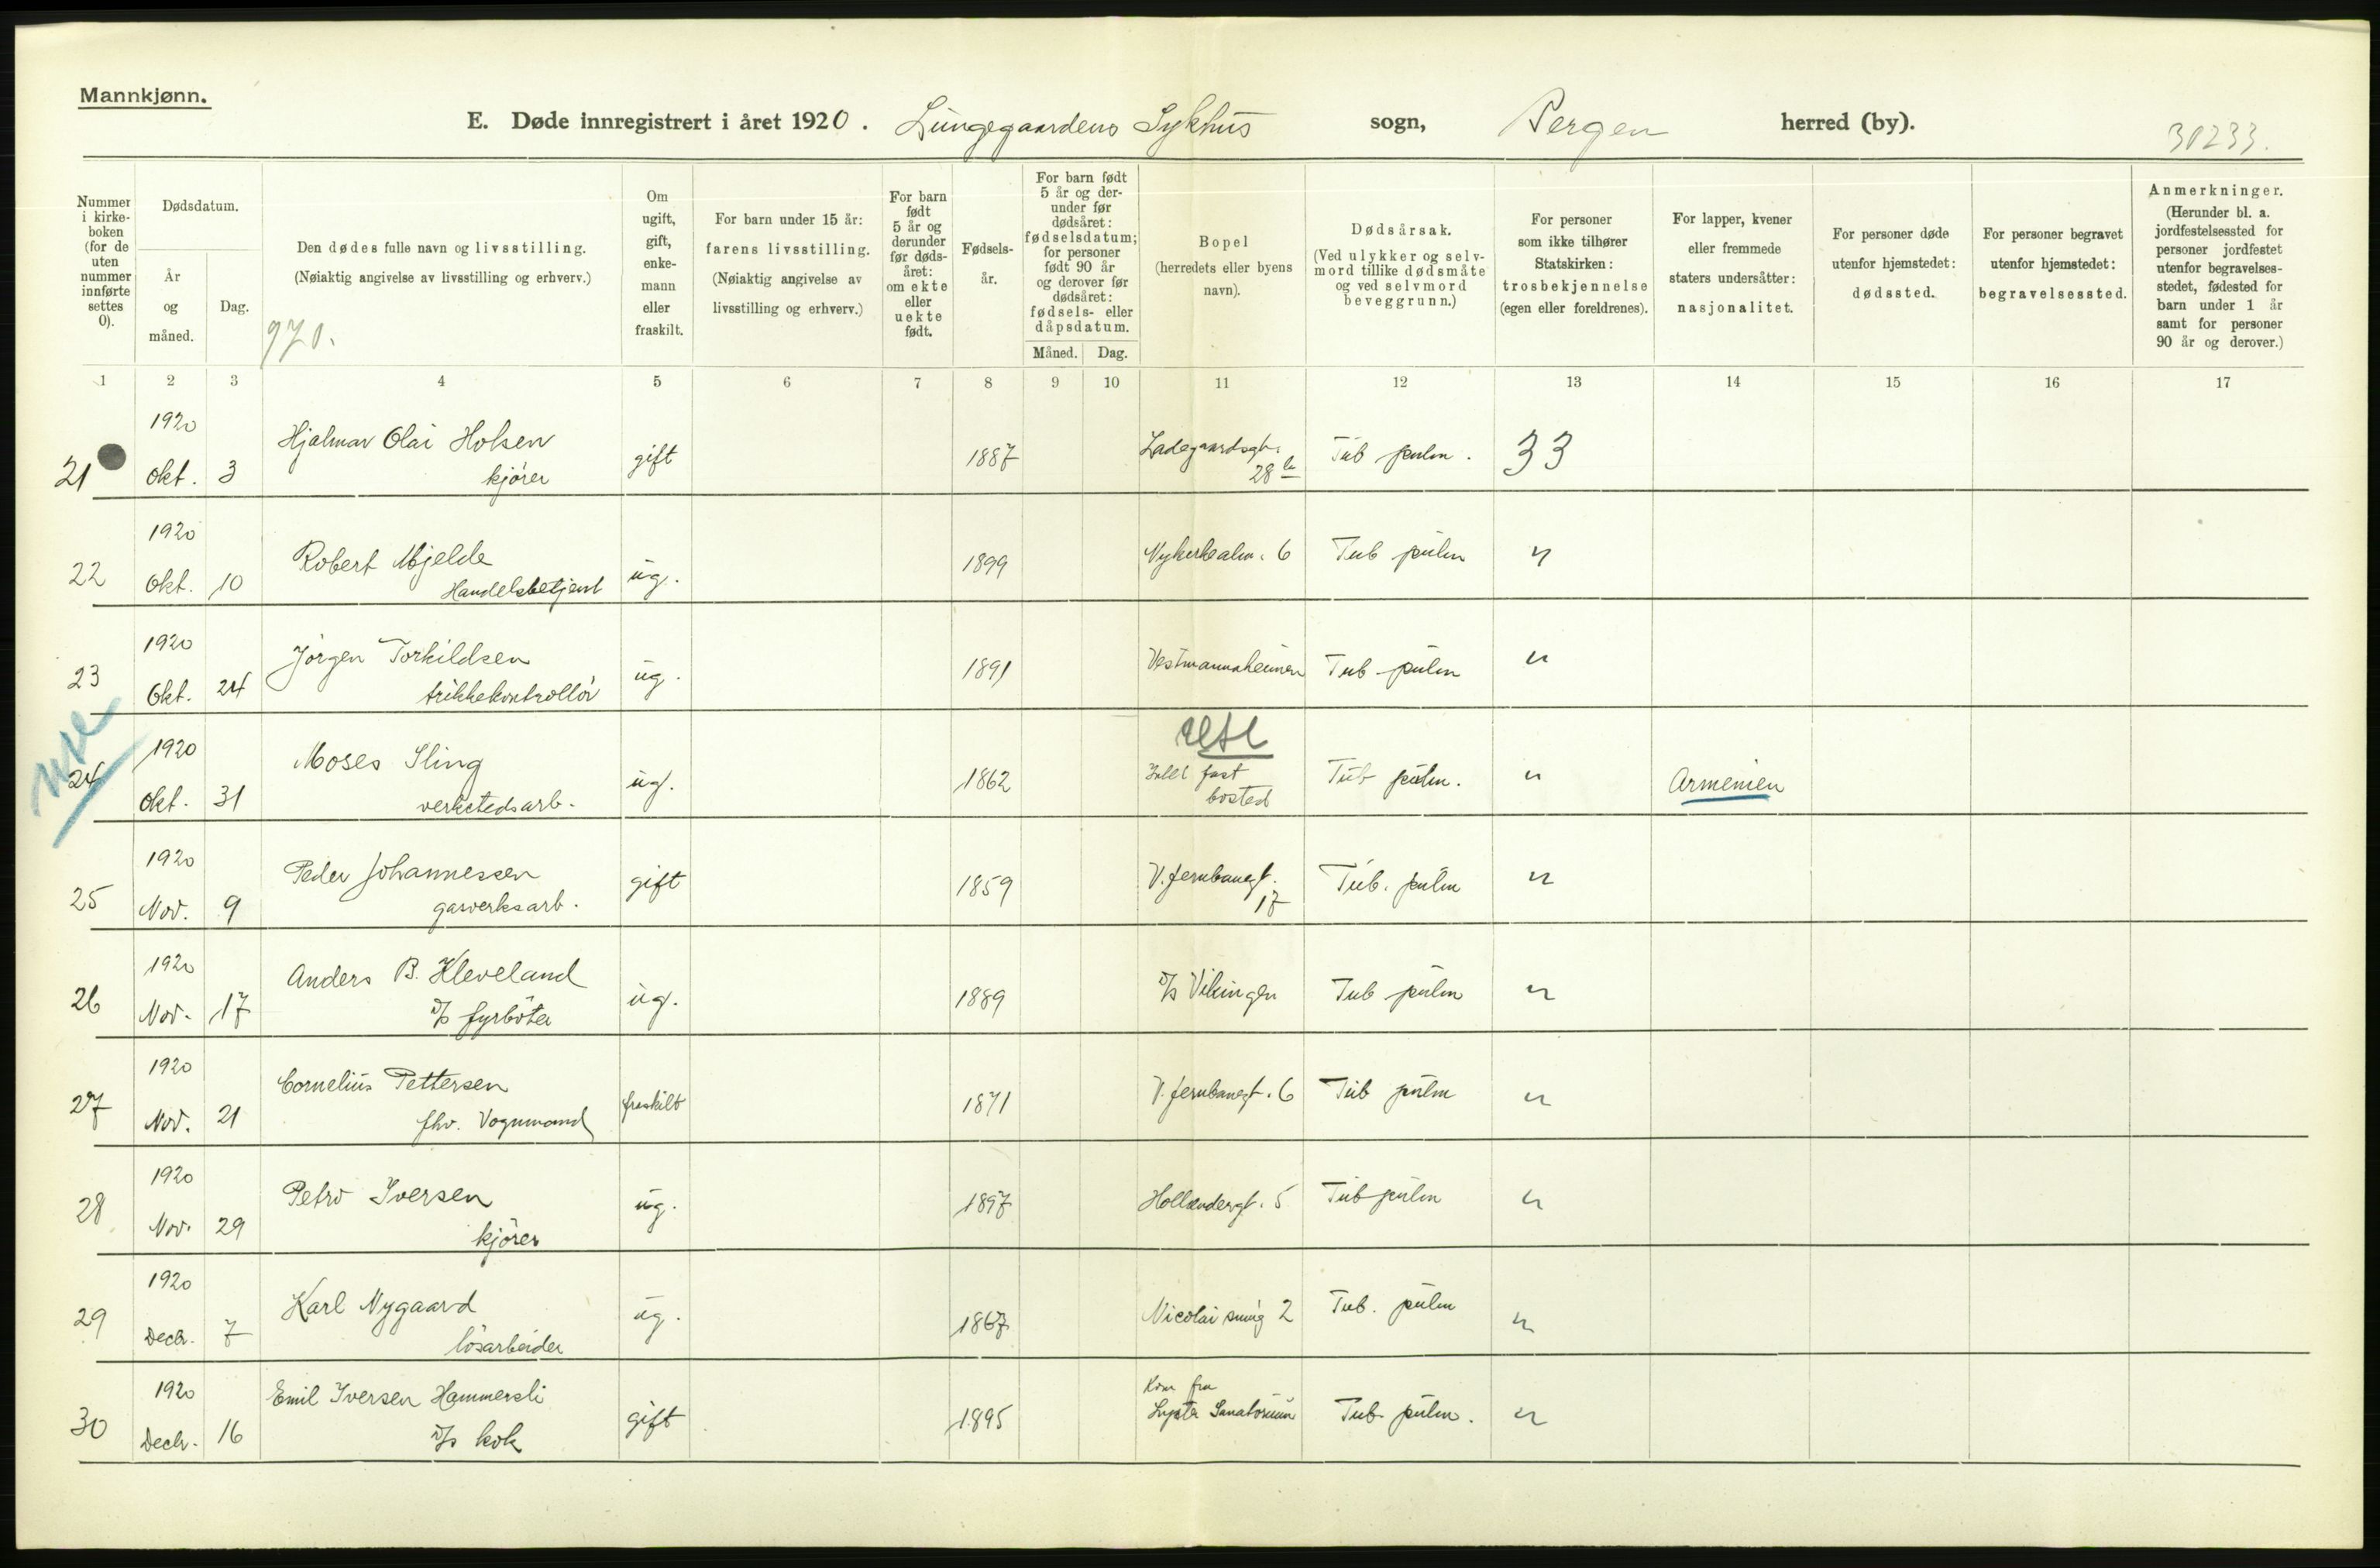 Mannkjønn.
E. Døde innregistrert i året 1920. Lungegaardens Sykhus sogn, Bergen herred (by).
30233.
Nummer i kirke- boken (for de uten nummer innførte settes 0).
Dødsdatum.
År og måned.
Dag.
Den dødes fulle navn og livsstilling.
(Nøiaktig angivelse av livsstilling og erhverv.)
970.
Om ugift, gift, enke- mann eller fraskilt.
For barn under 15 år:
farens livsstilling.
(Nøiaktig angivelse av
livsstilling og erhverv.)
For barn født 5 år og derunder før døds- året: om ekte eller uekte født.
Fødsels- år.
For barn født 5 år og der- under før dødsåret: fødselsdatum; for personer født 90 år og derover før dødsåret: fødsels- eller dåpsdatum.
Måned. Dag.
Bopel
(herredets eller byens
navn).
Dødsårsak.
(Ved ulykker og selv-
mord tillike dødsmåte
og ved selvmord
beveggrunn.)
For personer
som ikke tilhører
Statskirken:
trosbekjennelse
(egen eller foreldrenes).
For lapper, kvener
eller fremmede
staters undersåtter:
nasjonalitet.
For personer døde
utenfor hjemstedet:
dødssted.
For personer begravet
utenfor hjemstedet:
begravelsessted.
Anmerkninger.
(Herunder bl. a.
jordfestelsessted for
personer jordfestet
utenfor begravelses-
stedet, fødested for
barn under 1 år
samt for personer
90 år og derover.)
1 2 3 4 5 6 7 8 9 10 11 12 13 14 15 16 17
21 1920 Okt. 3 Hjalmar Olai Holsen kjörer gift 1887 Ladegaardsgt. 28 Tub pulm. 33
22 1920 Okt. 10 Robert Mjelde Handelsbetjent ug. 1899 Nykirkealm. 6 Tub pulm "
23 1920 Okt. 24 Jörgen Torkildsen trikkekontrollör ug. 1891 Vestmannaheimen Tub pulm "
24 1920 Okt. 31 Moses Sling verkstedsarb. ug. 1862 Intet fast bosted Tub pulm. " Armenien
25 1920 Nov. 9 Peder Johannessen gasverksarb. gift 1859 V. Jernbanegt. 17 Tub. pulm "
26 1920 Nov. 17 Anders B. Kleveland D/s fyrböter ug. 1889 D/s Vikingen Tub pulm "
27 1920 Nov. 21 Cornelius Pettersen fhv. Vognmand fraskilt 1871 V. Jernbanegt. 6 Tub pulm "
28 1920 Nov. 29 Petro Iversen kjörer ug. 1897 Hollendergt. 5 Tub pulm "
29 1920 Decbr. 7 Karl Nygaard lösarbeider ug. 1867 Nicolai smug 2 Tub. pulm "
30 1920 Decbr. 16 Emil Iversen Hammersli D/s kok gift 1895 Kom fra Lyster Sanatorium Tub pulm. "